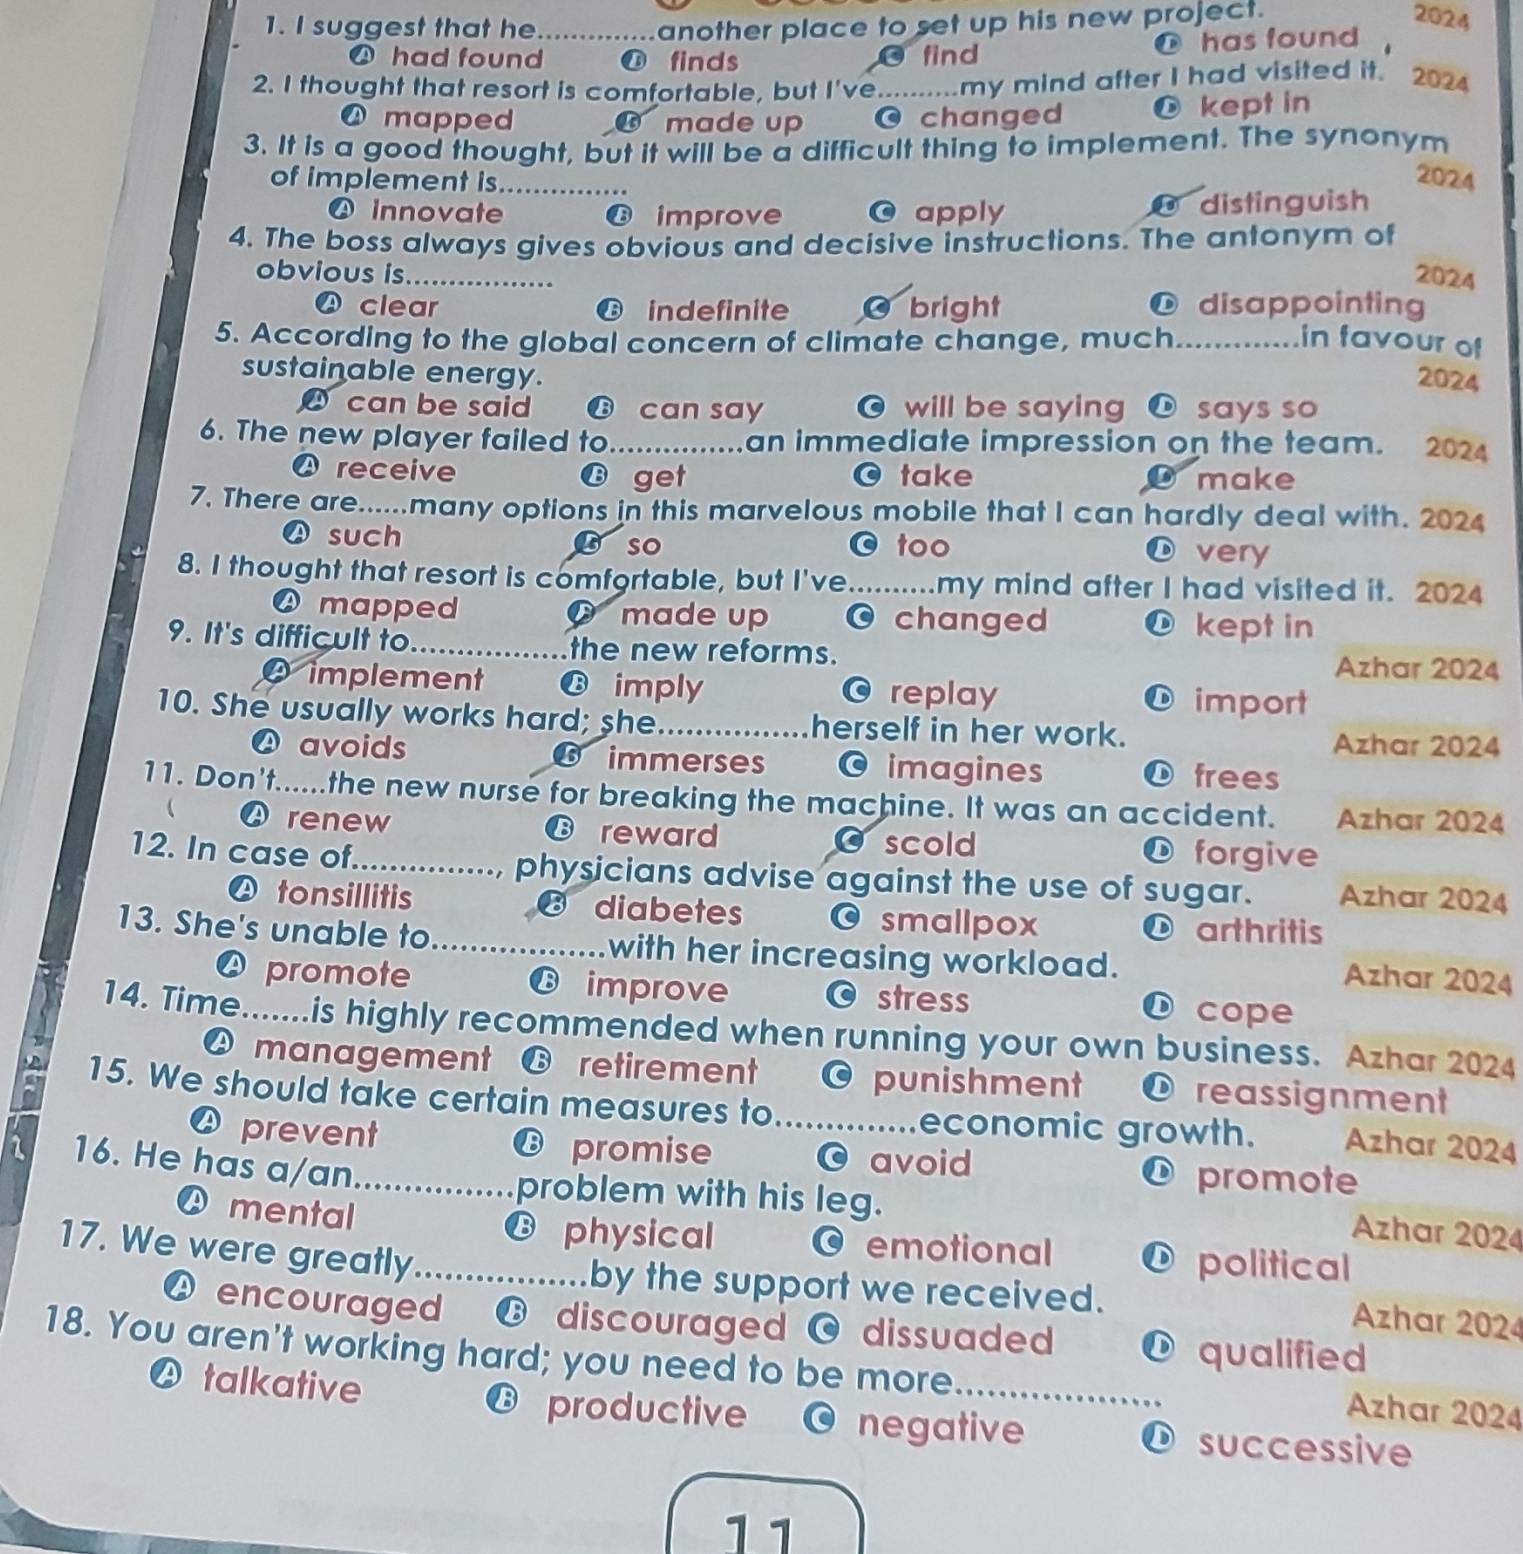 1. I suggest that he..............another place to set up his new project. 2024
A had found B finds C find D has found
2. I thought that resort is comfortable, but I've..........my mind after I had visited it. 2024
A mapped B made up C changed D kept in
3. It is a good thought, but it will be a difficult thing to implement. The synonym
of implement is............... 2024
A innovate B improve C apply D distinguish
4. The boss always gives obvious and decisive instructions. The antonym of
obvious is................. 2024
A clear B indefinite C bright D disappointing
5. According to the global concern of climate change, much.............in favour of
sustainable energy. 2024
A can be said B can say C will be saying D says so
6. The new player failed to...............an immediate impression on the team. 2024
A receive B get C take D make
7. There are......many options in this marvelous mobile that I can hardly deal with. 2024
A such B so C too D very
8. I thought that resort is comfortable, but I've..........my mind after I had visited it. 2024
A mapped B made up C changed D kept in
9. It's difficult to.................the new reforms. Azhar 2024
A implement B imply C replay D import
10. She usually works hard; she................herself in her work. Azhar 2024
A avoids B immerses C imagines D frees
11. Don't......the new nurse for breaking the machine. It was an accident. Azhar 2024
A renew B reward C scold D forgive
12. In case of..............., physicians advise against the use of sugar. Azhar 2024
A tonsillitis B diabetes C smallpox D arthritis
13. She's unable to..................with her increasing workload. Azhar 2024
A promote B improve C stress D cope
14. Time.......is highly recommended when running your own business. Azhar 2024
A management B retirement C punishment D reassignment
15. We should take certain measures to..............economic growth. Azhar 2024
A prevent B promise C avoid D promote
16. He has a/an................problem with his leg. Azhar 2024
A mental B physical C emotional D political
17. We were greatly.................by the support we received. Azhar 2024
A encouraged B discouraged C dissuaded D qualified
18. You aren't working hard; you need to be more.................... Azhar 2024
A talkative B productive C negative D successive
11